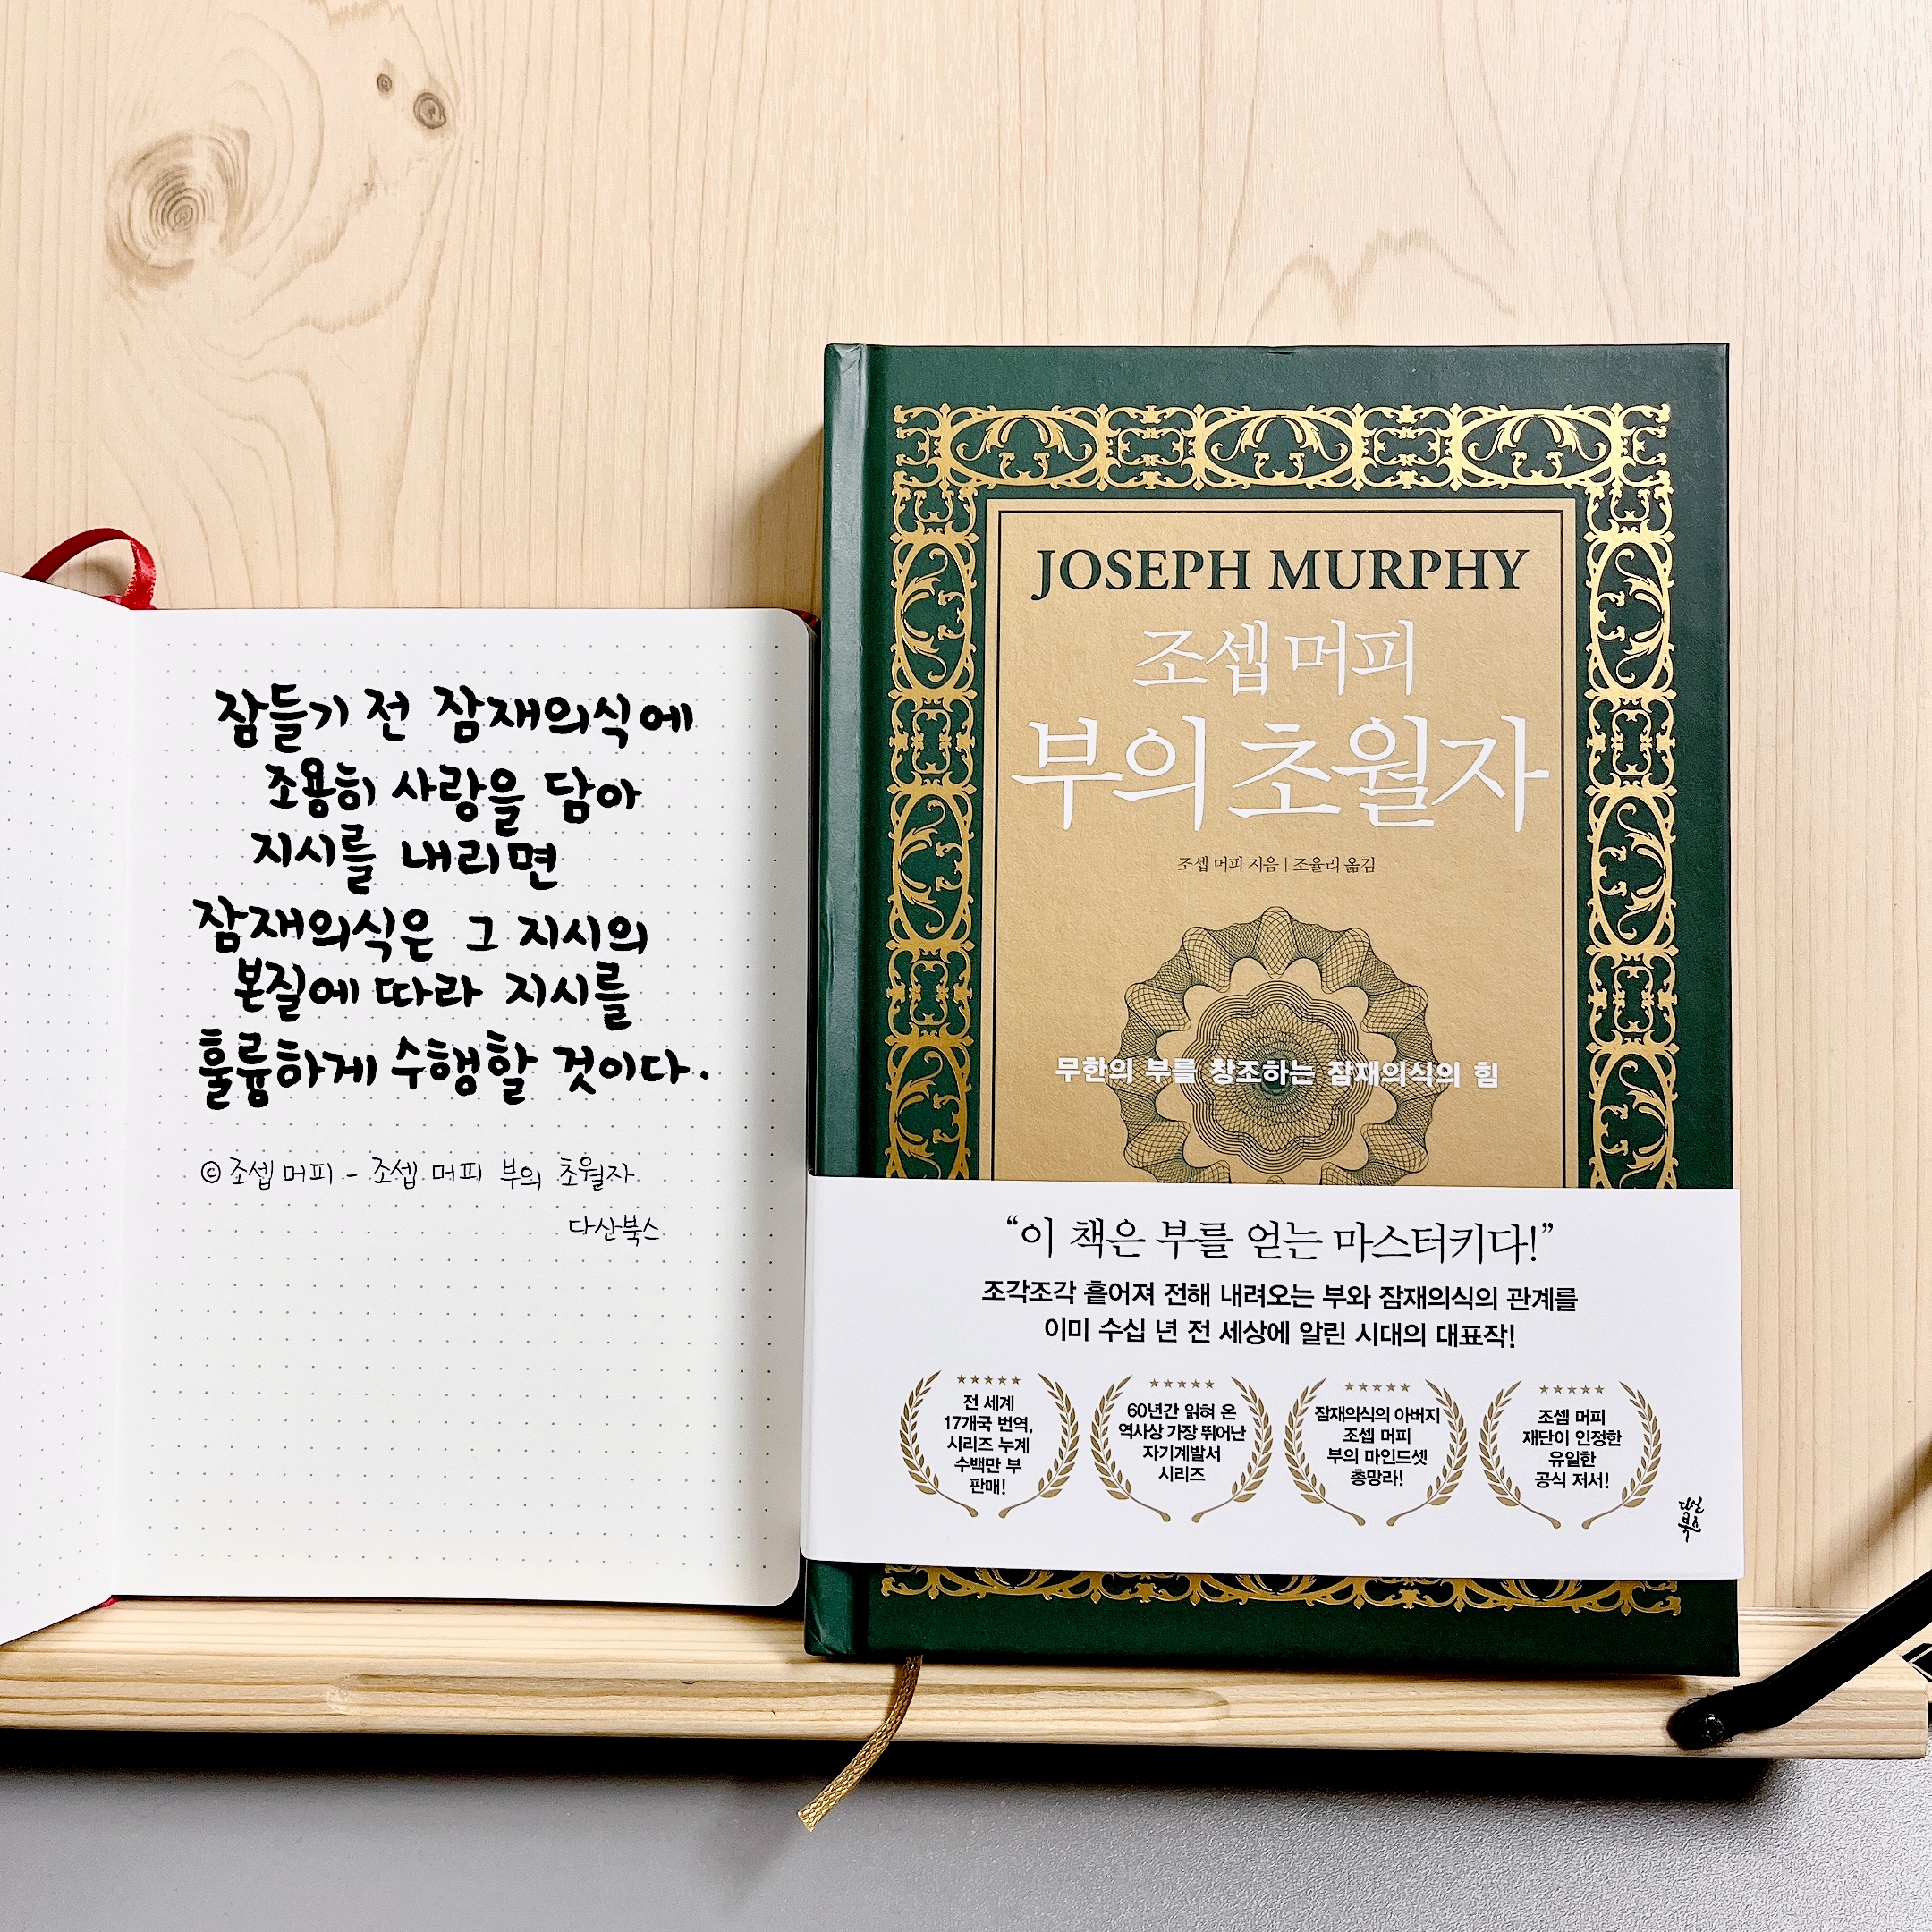 잠들기 전 잠재의식에
조용히 사랑을 담아
지시를 내리면
잠재의식은 그 지시의
본질에 따라 지시를
훌륭하게 수행할 것이다.
©조셉 머피 - 조셉 머피 부의 초월자
다산북스
JOSEPH MURPHY
조셉 머피
부의 초월자
조셉 머피 지음 | 조율리 옮김
무한의 부를 창조하는 잠재의식의 힘
“이 책은 부를 얻는 마스터키다!”
조각조각 흩어져 전해 내려오는 부와 잠재의식의 관계를
이미 수십 년 전 세상에 알린 시대의 대표작!
전 세계
17개국 번역,
시리즈 누계
수백만 부
판매!
60년간 읽혀 온
역사상 가장 뛰어난
자기계발서
시리즈
잠재의식의 아버지
조셉 머피
부의 마인드셋
총망라!
조셉 머피
재단이 인정한
유일한
공식 저서!
다산
북스